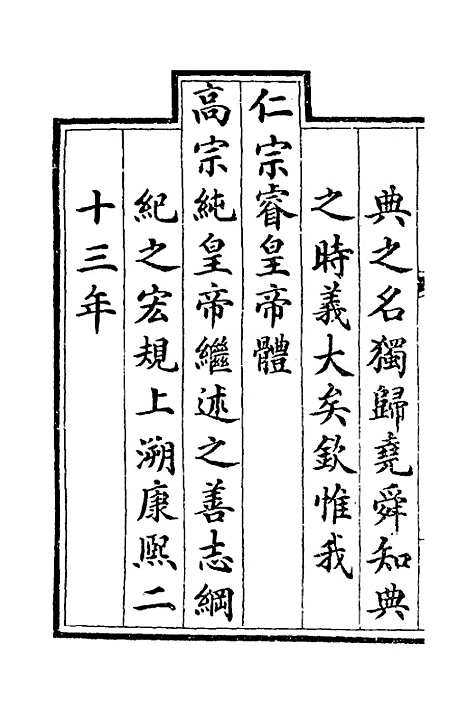 典之名獨歸堯舜知典
之時義大矣欽惟我
仁宗睿皇帝體
高宗純皇帝繼述之善志綱
紀之宏規上溯康熙二
十三年